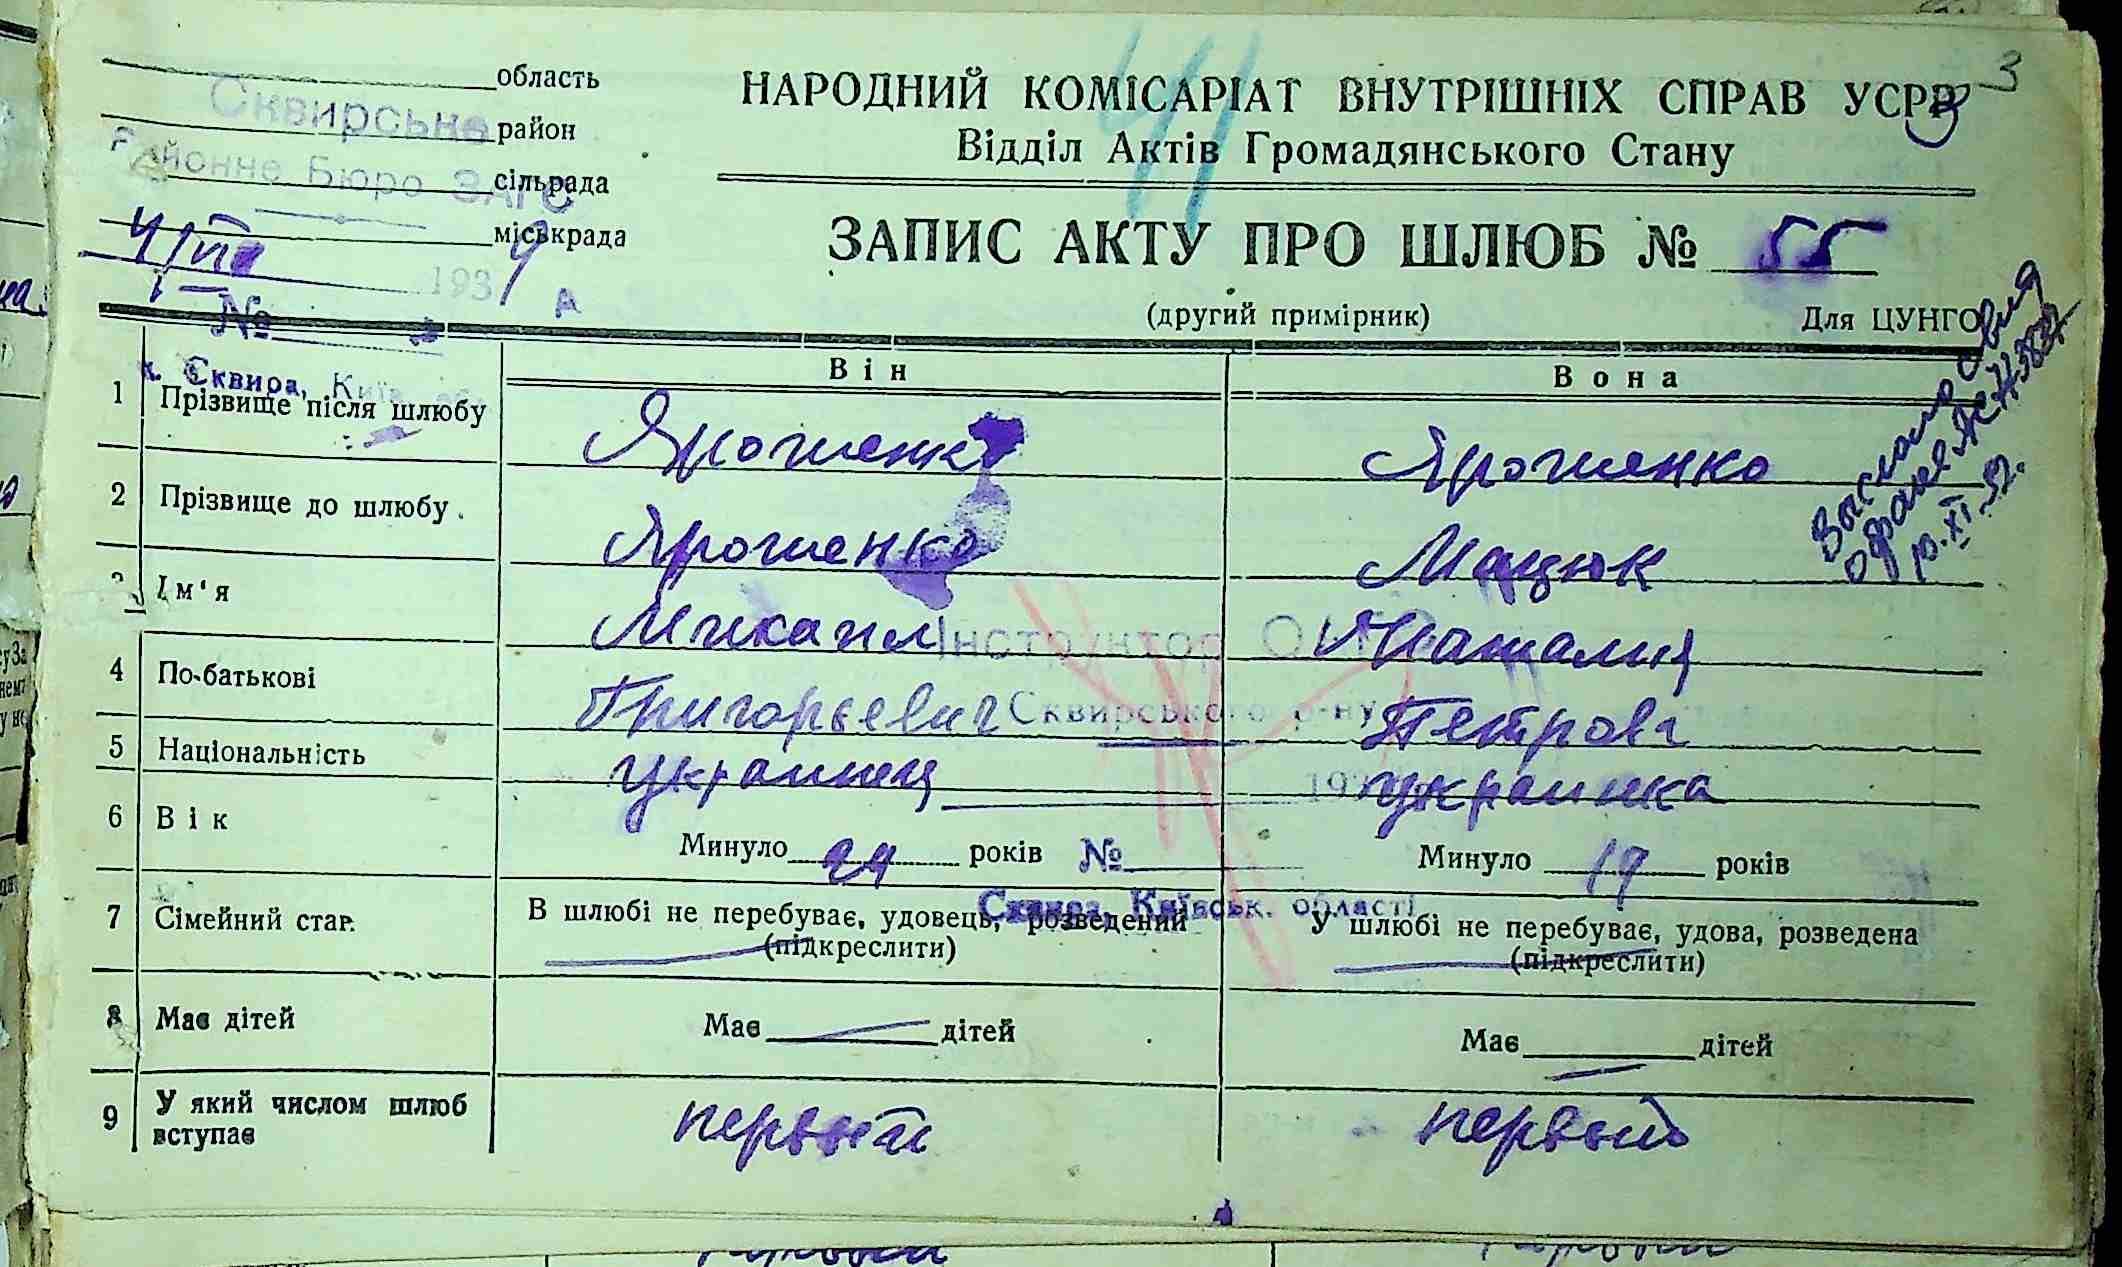 область
Сквирське
район
Районне Бюро ЗАГС
сільрада
міськрада
193
№
м. Сквира, Київ. обл.
3
НАРОДНИЙ КОМІСАРІАТ ВНУТРІШНІХ СПРАВ УСРР
Відділ Актів Громадянського Стану
41
ЗАПИС АКТУ ПРО ШЛЮБ № 55
(другий примірник) Для ЦУНГО
10.XI.52.
Він Вона
1 Прізвище після шлюбу Ярошенко Ярошенко
2 Прізвище до шлюбу Ярошенко Мацюк
3 Ім'я Михаил Наталия
Інструктор
4 По-батькові Григорьевич Петрова
Сквирського р-ну
5 Національність украинец украинка
6 Вік Минуло 24 років Минуло 19 років
№
Сквира, Київськ. області
7 Сімейний стан. В шлюбі не перебуває, удовець, розведений У шлюбі не перебуває, удова, розведена
(підкреслити) (підкреслити)
8 Має дітей Має дітей Має дітей
9 У який числом шлюб вступає первый первый